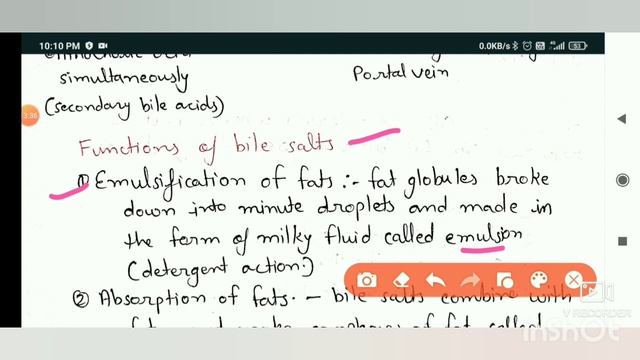 10:10 PM
0.0KB/s
4G
53
simultaneously
Portal vein
(secondary bile acids)
3:36
Functions of bile salts
① Emulsification of fats :- fat globules broke
down into minute droplets and made in
the form of milky fluid called emulsion
(detergent action:)
② Absorption of fats. - bile salts combine with
of fat called
V RECORDER
InShOt